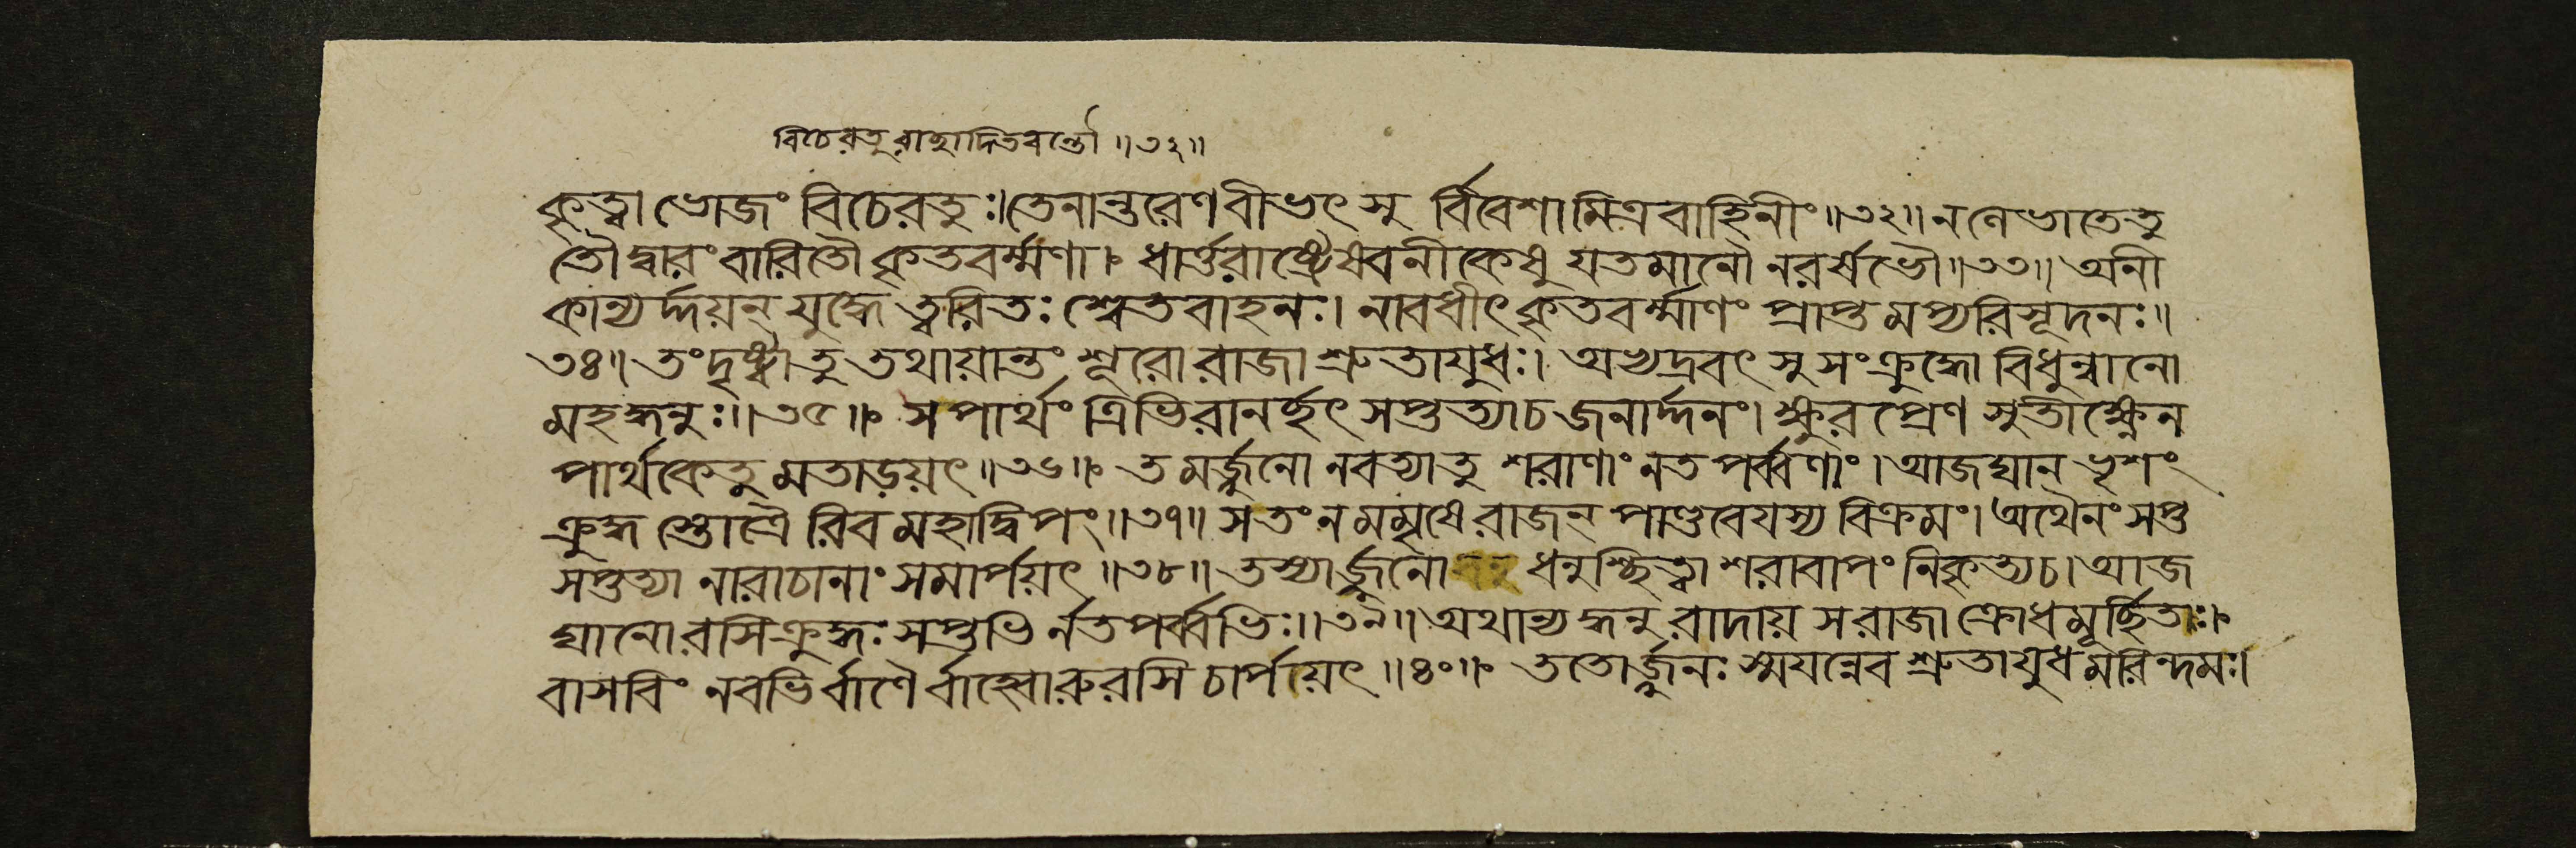 বিচেরতু রাহাদিতবর্ত্তৌ ॥ ৩২ ॥
কৃত্বা ভোজং বিচেরতুঃ। তেনান্তরেণ বীভৎসু র্বিবেশামিত্রবাহিনীং ॥ ৩২ ॥ ন লেভাতে তু
তৌ দ্বারং বারিতৌ কৃতবর্ম্মণা। ধার্ত্তরাষ্ট্রেষ্বনীকেষু যতমানৌ নরর্ষভৌ ॥ ৩৩ ॥ অনী
কান্যর্দ্দয়ন্ যুদ্ধে ত্বরিতঃ শ্বেতবাহনঃ। নাবধীৎ কৃতবর্ম্মাণং প্রাপ্তমপ্যরিসূদনঃ ॥
৩৪ ॥ তং দৃষ্ট্বা তু তথায়ান্তং শূরো রাজা শ্রুতাযুধঃ। অভ্যদ্রবৎ সুসংক্রুদ্ধো বিধুন্বানো
মহদ্ধনুঃ ॥ ৩৫ ॥ স পার্থং ত্রিভিরানর্চ্ছৎ সপ্তত্যা চ জনার্দ্দনং। ক্ষুরপ্রেণ সুতীক্ষ্ণেন
পার্থকেতুমতাড়য়ৎ ॥ ৩৬ ॥ তমর্জ্জুনো নবত্যা তু শরাণাং নতপর্ব্বণাং। আজঘান ভৃশং
ক্রুদ্ধ স্তোত্রৈ রিব মহাদ্বিপং ॥ ৩৭ ॥ স তং ন মমৃষে রাজন্ পাণ্ডবেযস্য বিক্রমং। অথৈনং সপ্ত
সপ্তত্যা নারাচানাং সমার্পয়ৎ ॥ ৩৮ ॥ তস্যার্জ্জুনো ধনুশ্ছিত্বা শরাবাপং নিকৃত্য চ। আজ
ঘানোরসি ক্রুদ্ধঃ সপ্তভি র্নতপর্ব্বভিঃ ॥ ৩৯ ॥ অথান্যদ্ধনু রাদায় স রাজা ক্রোধমূর্চ্ছিতঃ।
বাসবিং নবভির্বাণৈ র্বাহ্বোরুরসি চার্পয়ৎ ॥ ৪০ ॥ ততোর্জ্জুনঃ স্ময়ন্নেব শ্রুতাযুধমরিন্দমঃ।